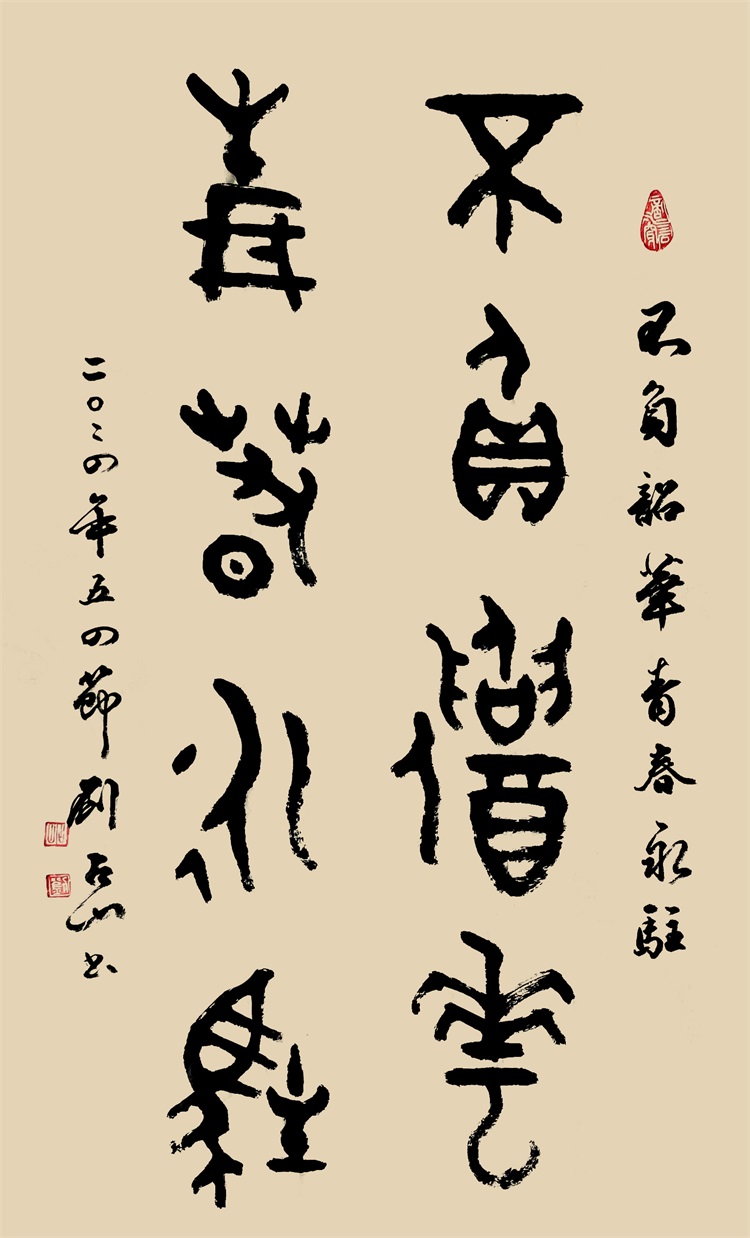 不負韶華青春永駐
不負韶華
青春永駐
二〇二四年五四節劉石山書